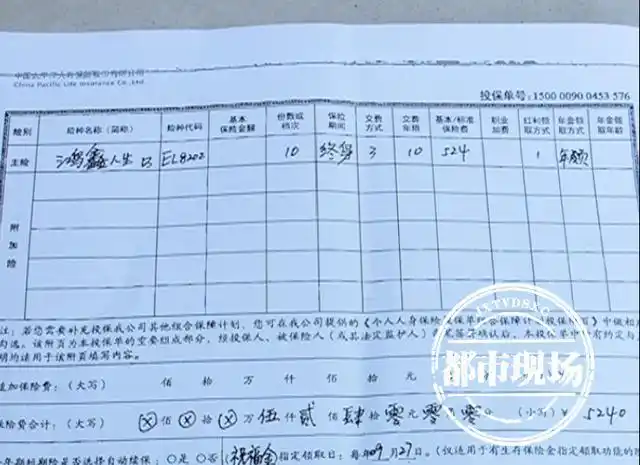 中国太平洋人寿保险股份有限公司
China Pacific Life Insurance Co.,Ltd.
投保单号:1500 0090 0453 576
险别 险种名称(简称) 险种代码 基本保险金额 份数或档次 保险期间 交费方式 交费年期 基本/标准保险费 职业加费 红利领取方式 年金领取方式 年金领取年龄
主险 鸿鑫人生 EL8202 10 终身 3 10 524 1 年领
附加险
注:若您需要补充投保我公司其他组合保障计划,您可在我公司提供的《个人人身保险投保单组合保障计划
勾选。该附页为本投保单的重要组成部分,经投保人、被保险人(或其法定监护人)
明均适用于该附页填写内容。
追加保险费:(大写) 佰 拾 万 仟 佰 拾 元
保险费合计:(大写) ⊗佰⊗拾⊗万伍仟贰佰肆拾零元零 零分 (小写)¥ 5240
年期短期险是否选择自动续保:○是 ○否 祝福金指定领取日:每年09月27日。(仅适用于有生存保险金指定领取功能的
JXTVDS.CO
都市现场